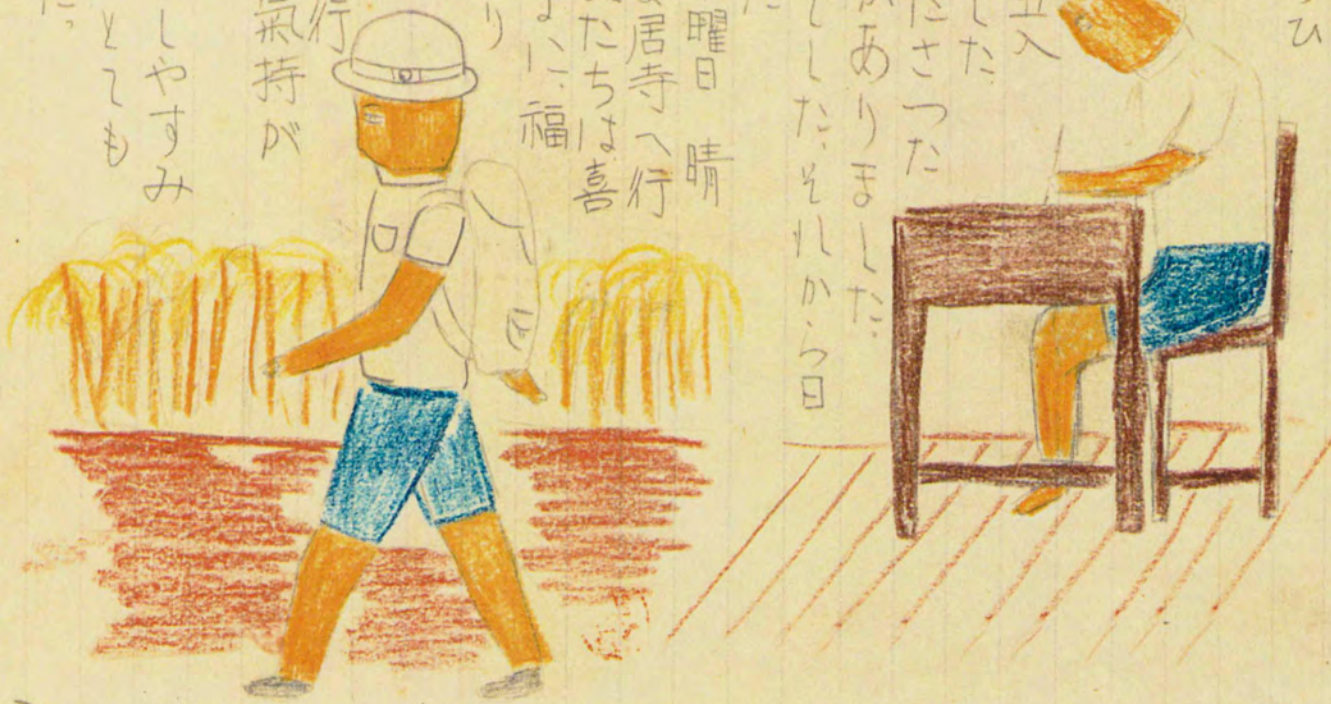 ひ
立入
した
ださつた
がありました。
でした。それから日
た
曜日 晴
居寺へ行
たちは喜
に、福
り
行
氣持が
しやすみ
とても
だつ